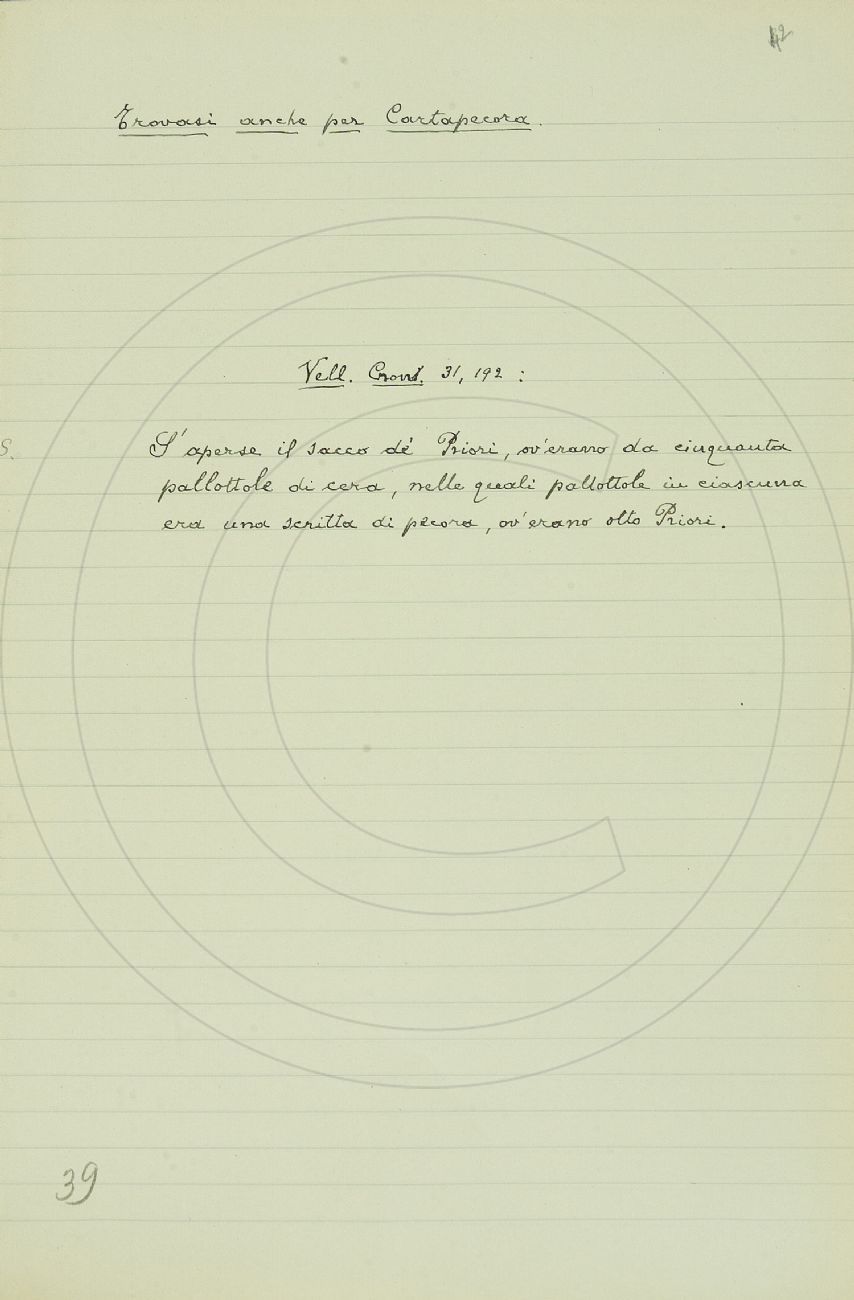 42
Trovasi anche per Cartapecora.
Vell. Cront. 31, 192 :
S.
S'aperse il sacco de' Priori, ov'erano da cinquanta
pallottole di cera, nelle quali pallottole in ciascuna
era una scritta di pecora, ov'erano otto Priori.
39